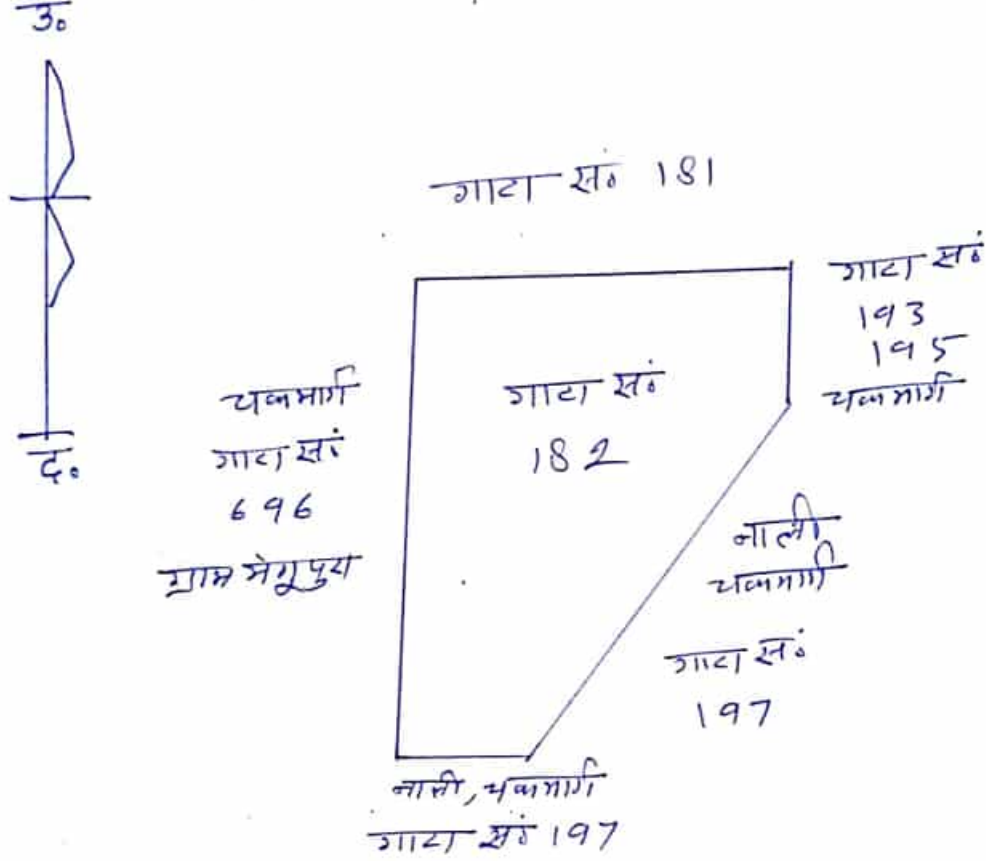 उ०
गाटा सं० 181
गाटा सं०
193
195
चकमार्ग
चकमार्ग
गाटा सं०
696
ग्राम मेगूपुरा
गाटा सं०
182
द०
नाली
चकमार्ग
गाटा सं०
197
नाली, चकमार्ग
गाटा सं० 197